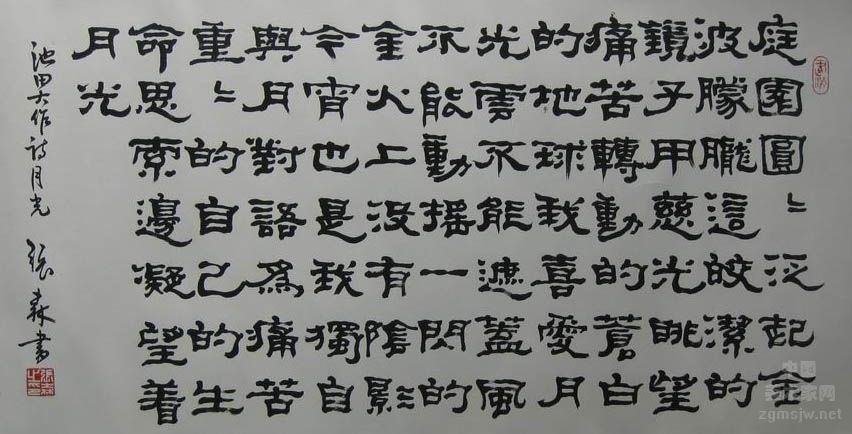 庭園圓〻泛起金
波朦朧這皎潔的
鏡子用慈光眺望
痛苦轉動的蒼白
的地球我喜愛月
光雲不能遮蓋風
不能動摇一閃的
金火上没有陰影
今宵也是我獨自
與月對語為痛苦
重〻的自己的生
命思索邊凝望着
月光
池田大作詩月光 張森書
張森之印
中国
美术家网
zgmsjw.net